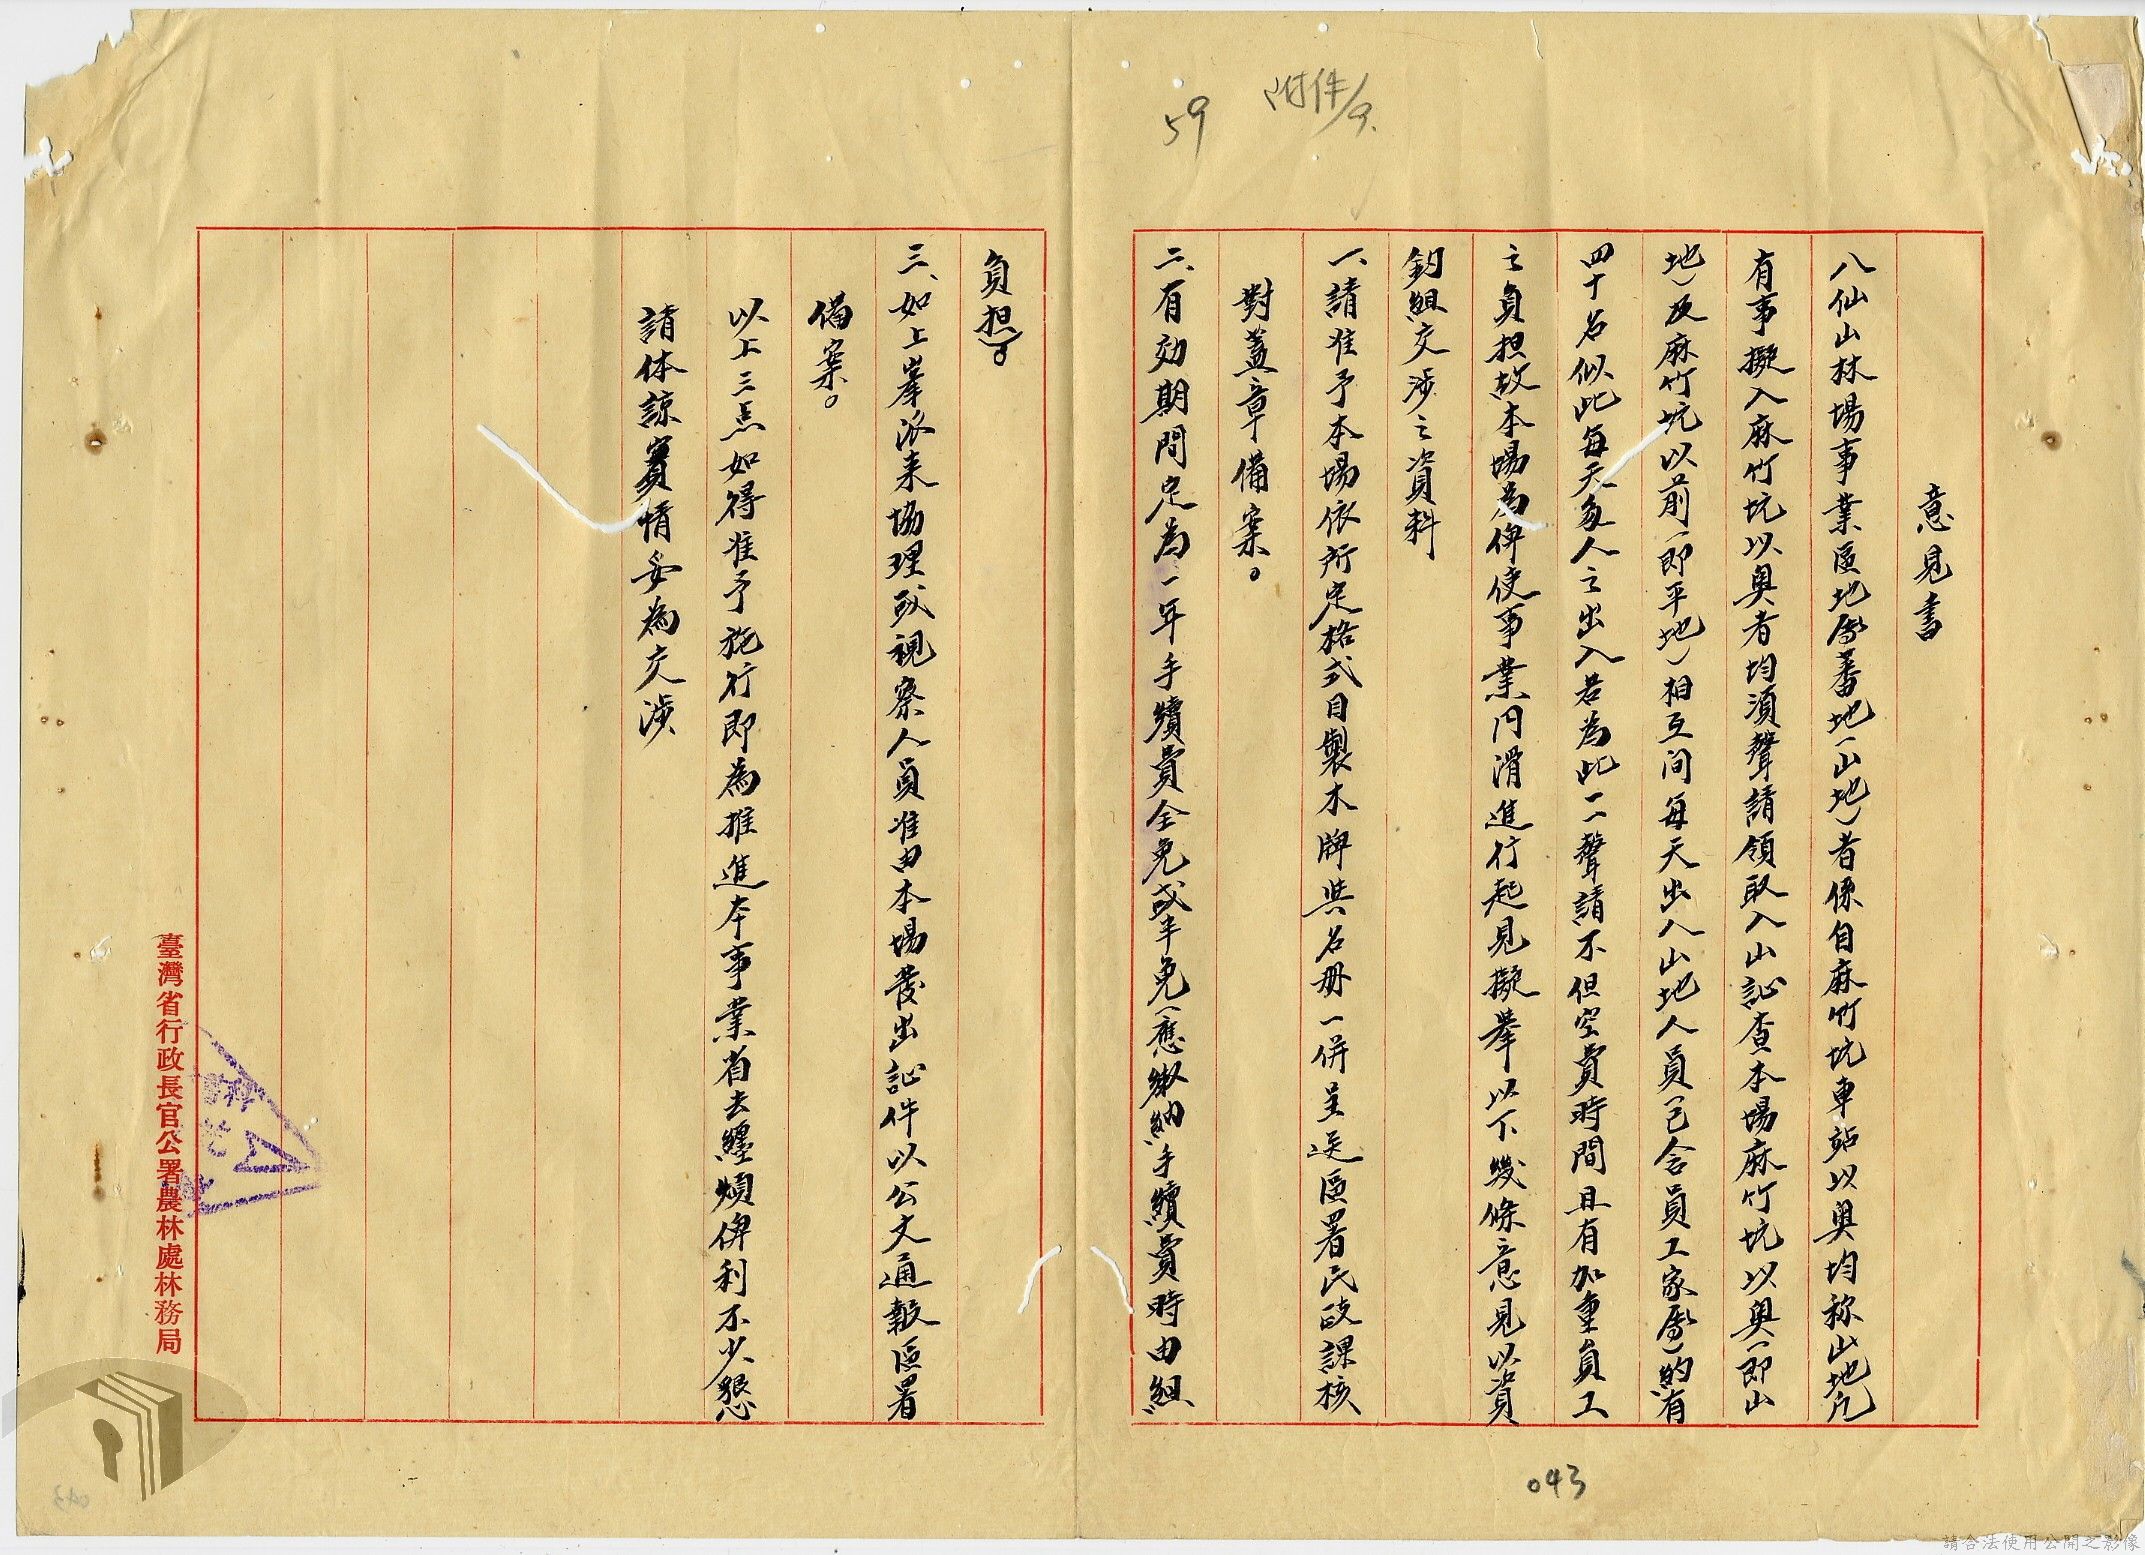 附件/9.
59
意見書
八仙山林場事業區地屬蕃地(山地)者係自麻竹坑車站以奧均称山地凡
有事擬入麻竹坑以奧者均須聲請領取入山証查本場麻竹坑以奧(即山
地)及麻竹坑以前(即平地)相互间每天出入山地人員(包含員工家屬)約有
四十名似此每天多人之出入若為此一一聲請不但空費時間且有加重員工
之負担故本場為俾使事業円滑進行起見擬舉以下幾條意見以資
鈞組交涉之資料
一、請准予本場依所定格式自製木牌與名册一併呈送區署民政課核
對蓋章備案。
二、有効期間定為一年手續費全免或半免(應繳納手續費時由組
負担)。
三、如上峯派来協理或視察人員准由本場發出証件以公文通報區署
備案。
以上三点如得准予施行即為推進本事業省去纏煩俾利不少懇
請体諒實情妥為交涉
臺灣省行政長官公署農林處林務局
043
請合法使用公開之影像